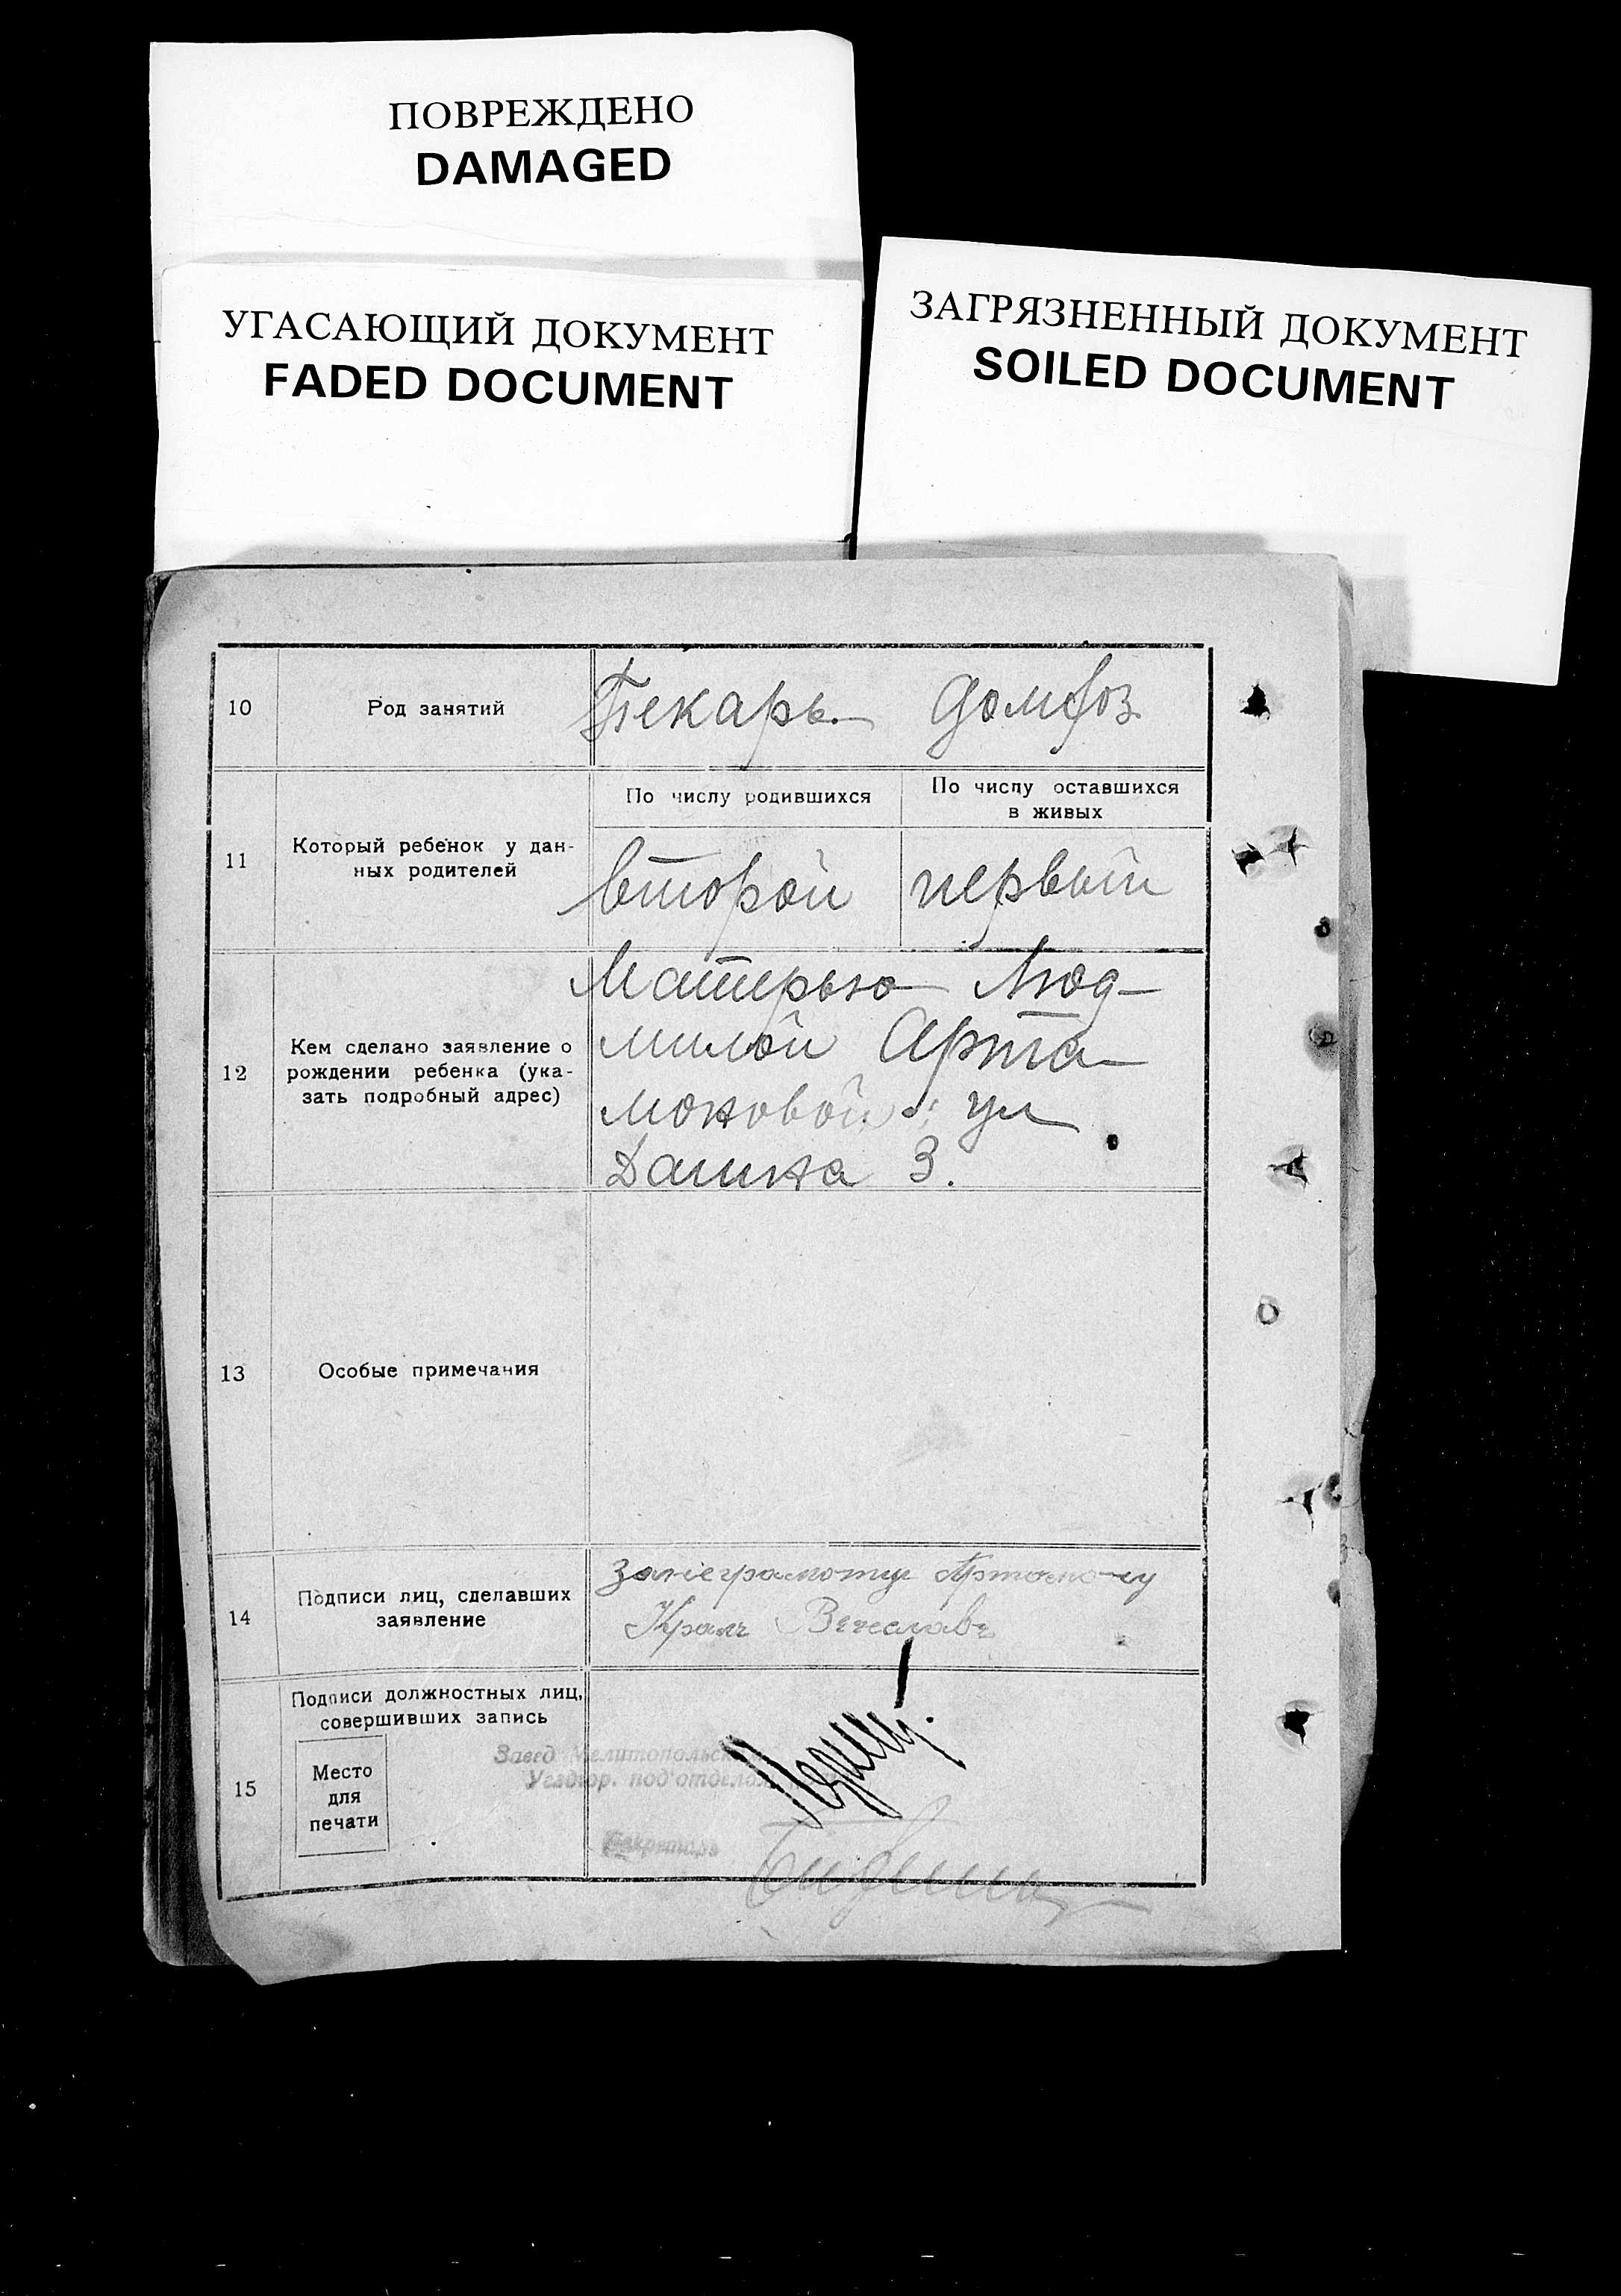 ПОВРЕЖДЕНО
DAMAGED
УГАСАЮЩИЙ ДОКУМЕНТ
FADED DOCUMENT
ЗАГРЯЗНЕННЫЙ ДОКУМЕНТ
SOILED DOCUMENT
10 Род занятий Пекарь домхоз
По числу родившихся По числу оставшихся
в живых
11 Который ребенок у дан-
ных родителей
второй первый
12 Кем сделано заявление о
рождении ребенка (ука-
зать подробный адрес)
Матерью Люд-
милой Арта-
моновой ул
3.
13 Особые примечания
14 Подписи лиц, сделавших
заявление
За неграмотну
Краль
15 Подписи должностных лиц,
совершивших запись
Место
для
печати
Завед Мелитопольским
Уездгор. под'отделом
Секретарь